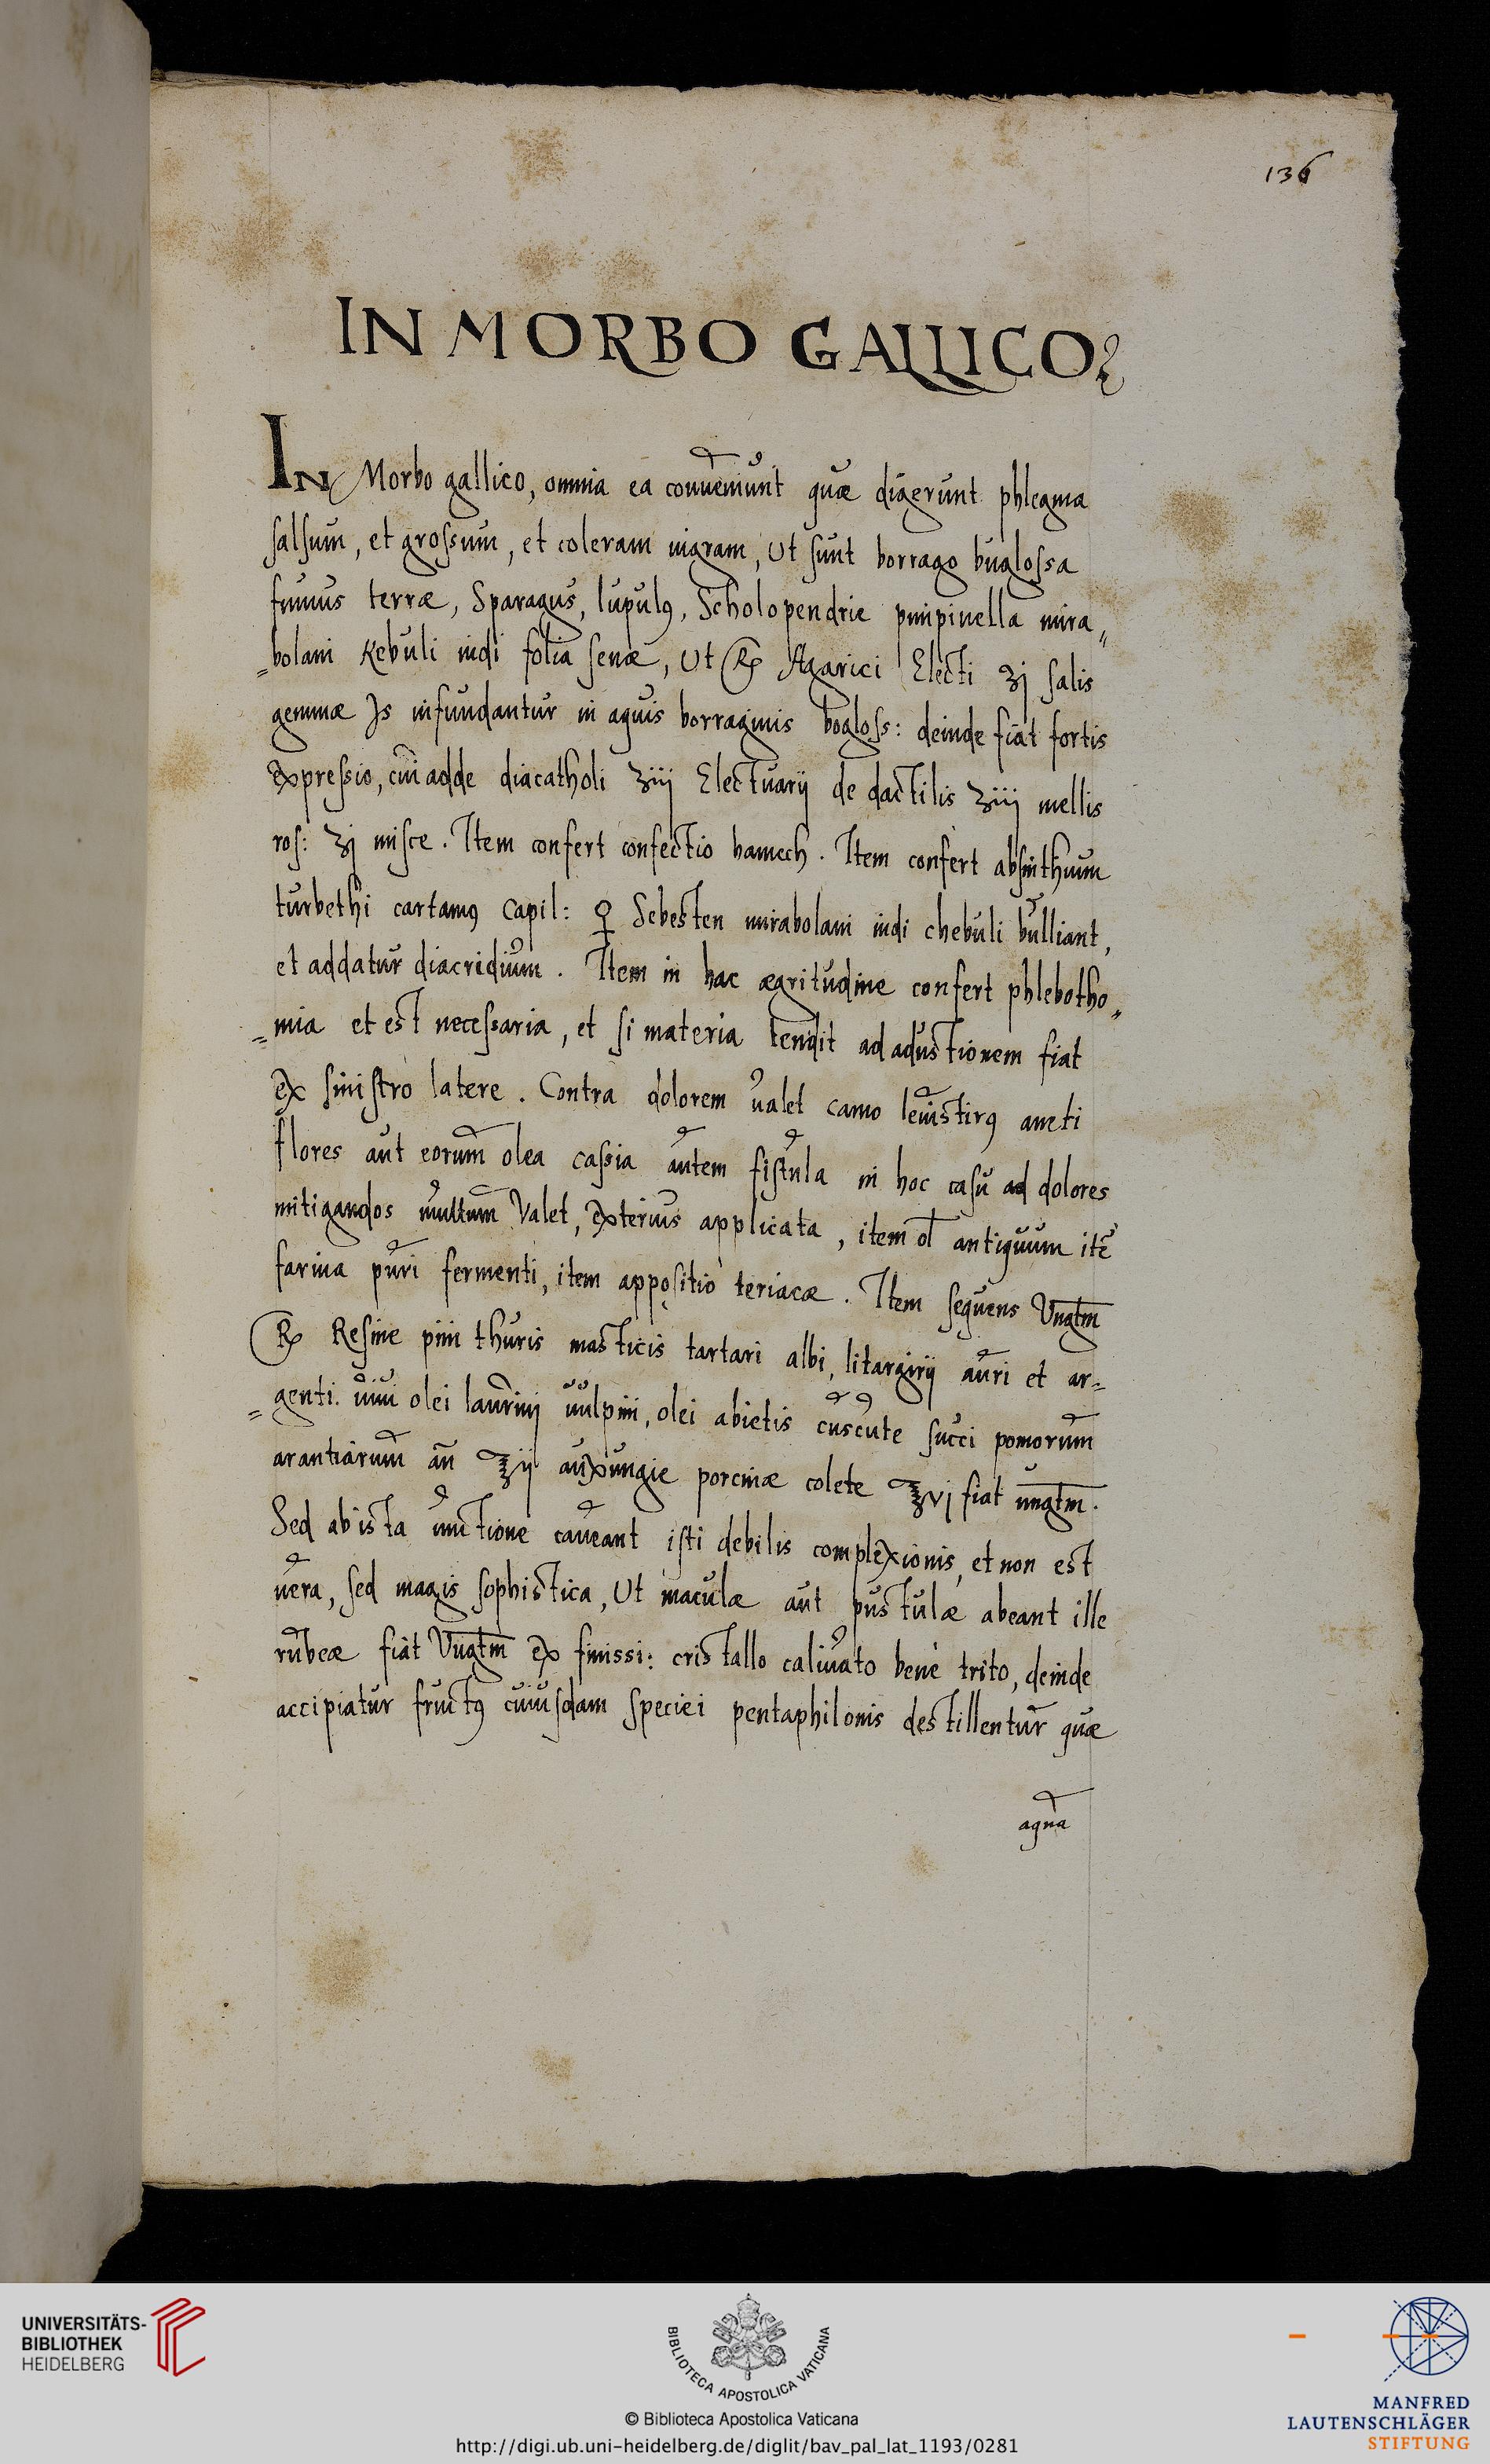 136
IN MORBO GALLICO
IN Morbo gallico, omnia ea conveniunt quæ digerunt phlegma
salsum, et grossum, et coleram nigram, ut sunt borrago buglossa
fumus terræ, Sparagus, lupulꝯ, Scholopendrie pinpinella mira„
„bolani Kebuli indi folia senæ, ut ℞ Agarici Electi ʒj salis
gemmæ ℈s infundantur in aquis borraginis bogloss: deinde fiat fortis
expressio, cui adde diacatholi ʒiij Electuarij de dactilis ʒiij mellis
ros: ʒj misce. Item confert confectio hamech. Item confert absinthium
turbethi cartamꝯ Capil: ♀ Sebesten mirabolani indi chebuli bulliant,
et addatur diacridium. Item in hac ægritudine confert phlebotho„
„mia et est necessaria, et si materia tendit ad adustionem fiat
ex sinistro latere. Contra dolorem valet camo leuistirꝯ aneti
flores aut eorum olea cassia autem fistula in hoc casu ad dolores
mitigandos multum valet, exterius applicata, item ol antiquum itē
farina puri fermenti, item appositio teriacæ. Item sequens Vngtm̄
℞ Resine pini thuris masticis tartari albi, litargirij auri et ar„
„genti. uiui olei laurinij uulpini, olei abietis cuscute succi pomorum
arantiarum an ℥ij auxungie porcinæ colete ℥vj fiat ungtm̄.
Sed ab ista unctione caveant isti debilis complexionis, et non est
uera, sed magis sophistica, ut maculæ aut pustulæ abeant ille
rubeæ fiat Vngtm̄ ex finissi: cristallo calivato benè trito, deinde
accipiatur fructꝯ cuiusdam speciei pentaphilonis destillentur quæ
aqua
UNIVERSITÄTS-
BIBLIOTHEK
HEIDELBERG
BIBLIOTECA APOSTOLICA VATICANA
© Biblioteca Apostolica Vaticana
http://digi.ub.uni-heidelberg.de/diglit/bav_pal_lat_1193/0281
MANFRED
LAUTENSCHLÄGER
STIFTUNG